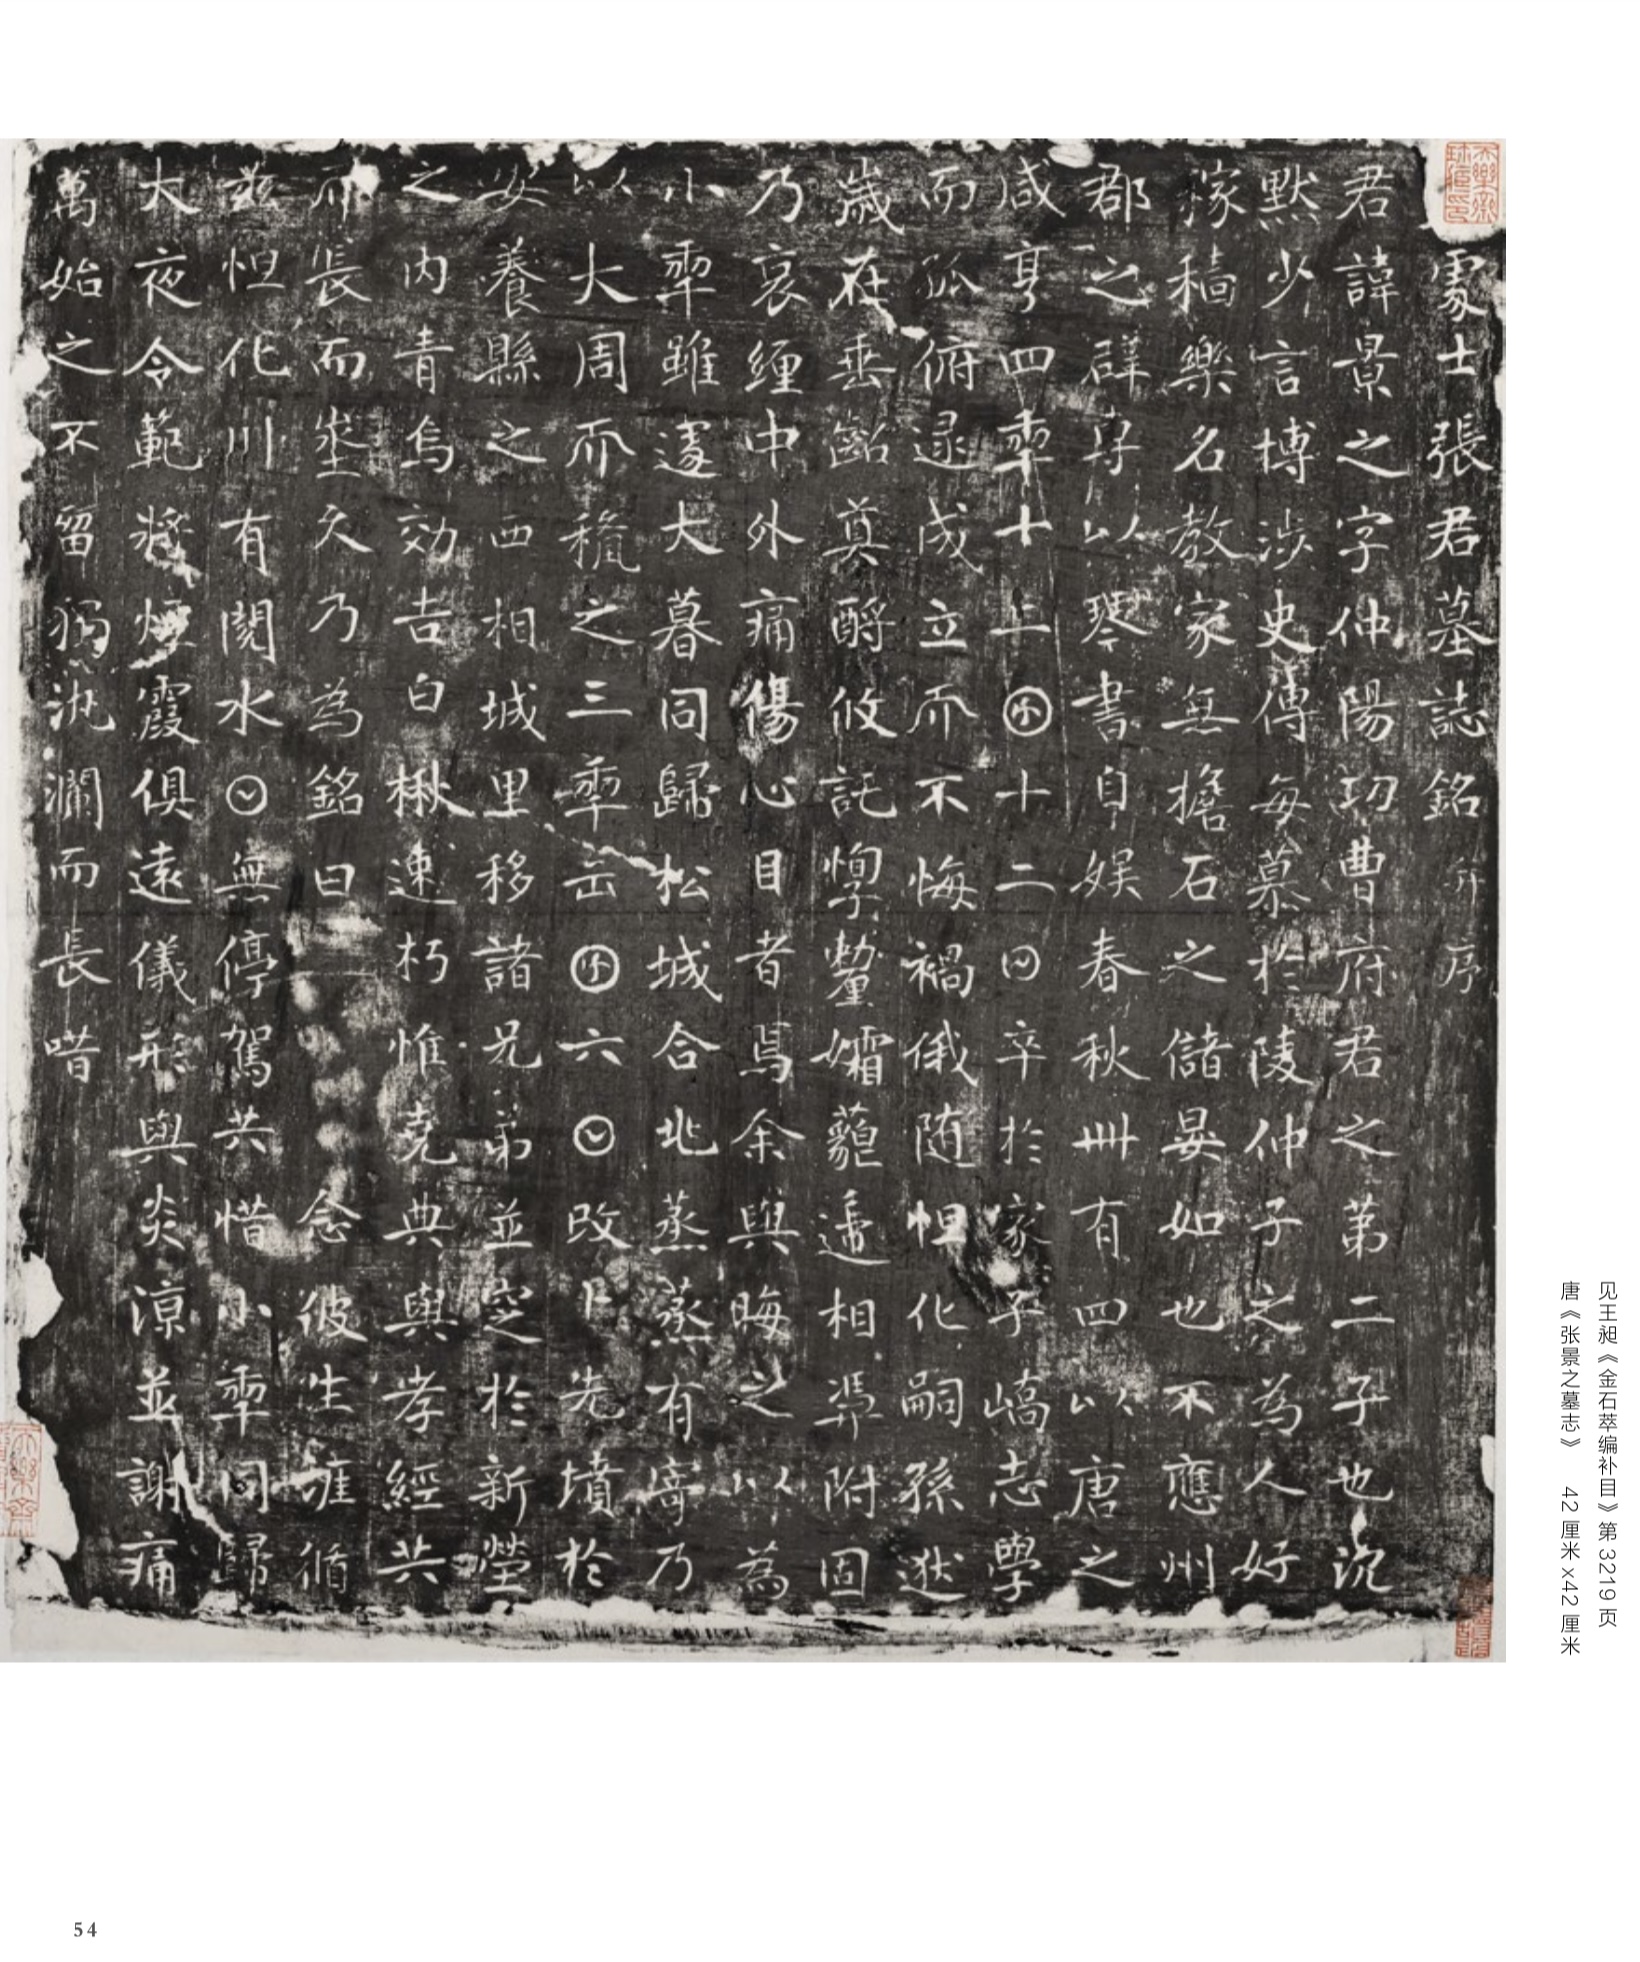 處士張君墓誌銘并序
君諱景之字仲陽功曹府君之第二子也沉
默少言博涉史傳每慕於陵仲子之為人好
稼穡樂名教家無擔石之儲晏如也不應州
郡之辟專以琴書自娛春秋卌有四以唐之
咸亨四年十二㊊十二日卒於家子嶠志學
而孤俯逮成立而不悔禍俄隨怛化嗣孫逖
歲在垂齠奠酹攸託惸嫠孀藐遞相憑附固
乃哀纏中外痛傷心目者焉余與晦之以為
小年雖邃大暮同歸松城合北蒸蒸有寄乃
以大周而穐之三年正囝六日改卜先墳於
安養縣之西相城里移諸兄弟並窆於新塋
之內青烏効吉白楸速朽惟堯典與孝經共
而長而坐久乃為銘曰 念彼生涯循
茲怛化川有閱水日無停駕共惜小年同歸
大夜令範將煙霞俱遠儀形與炎涼並謝痛
萬始之不留獨汍瀾而長喈
见王昶《金石萃编补目》第3219页
唐《张景之墓志》 42厘米x42厘米
54